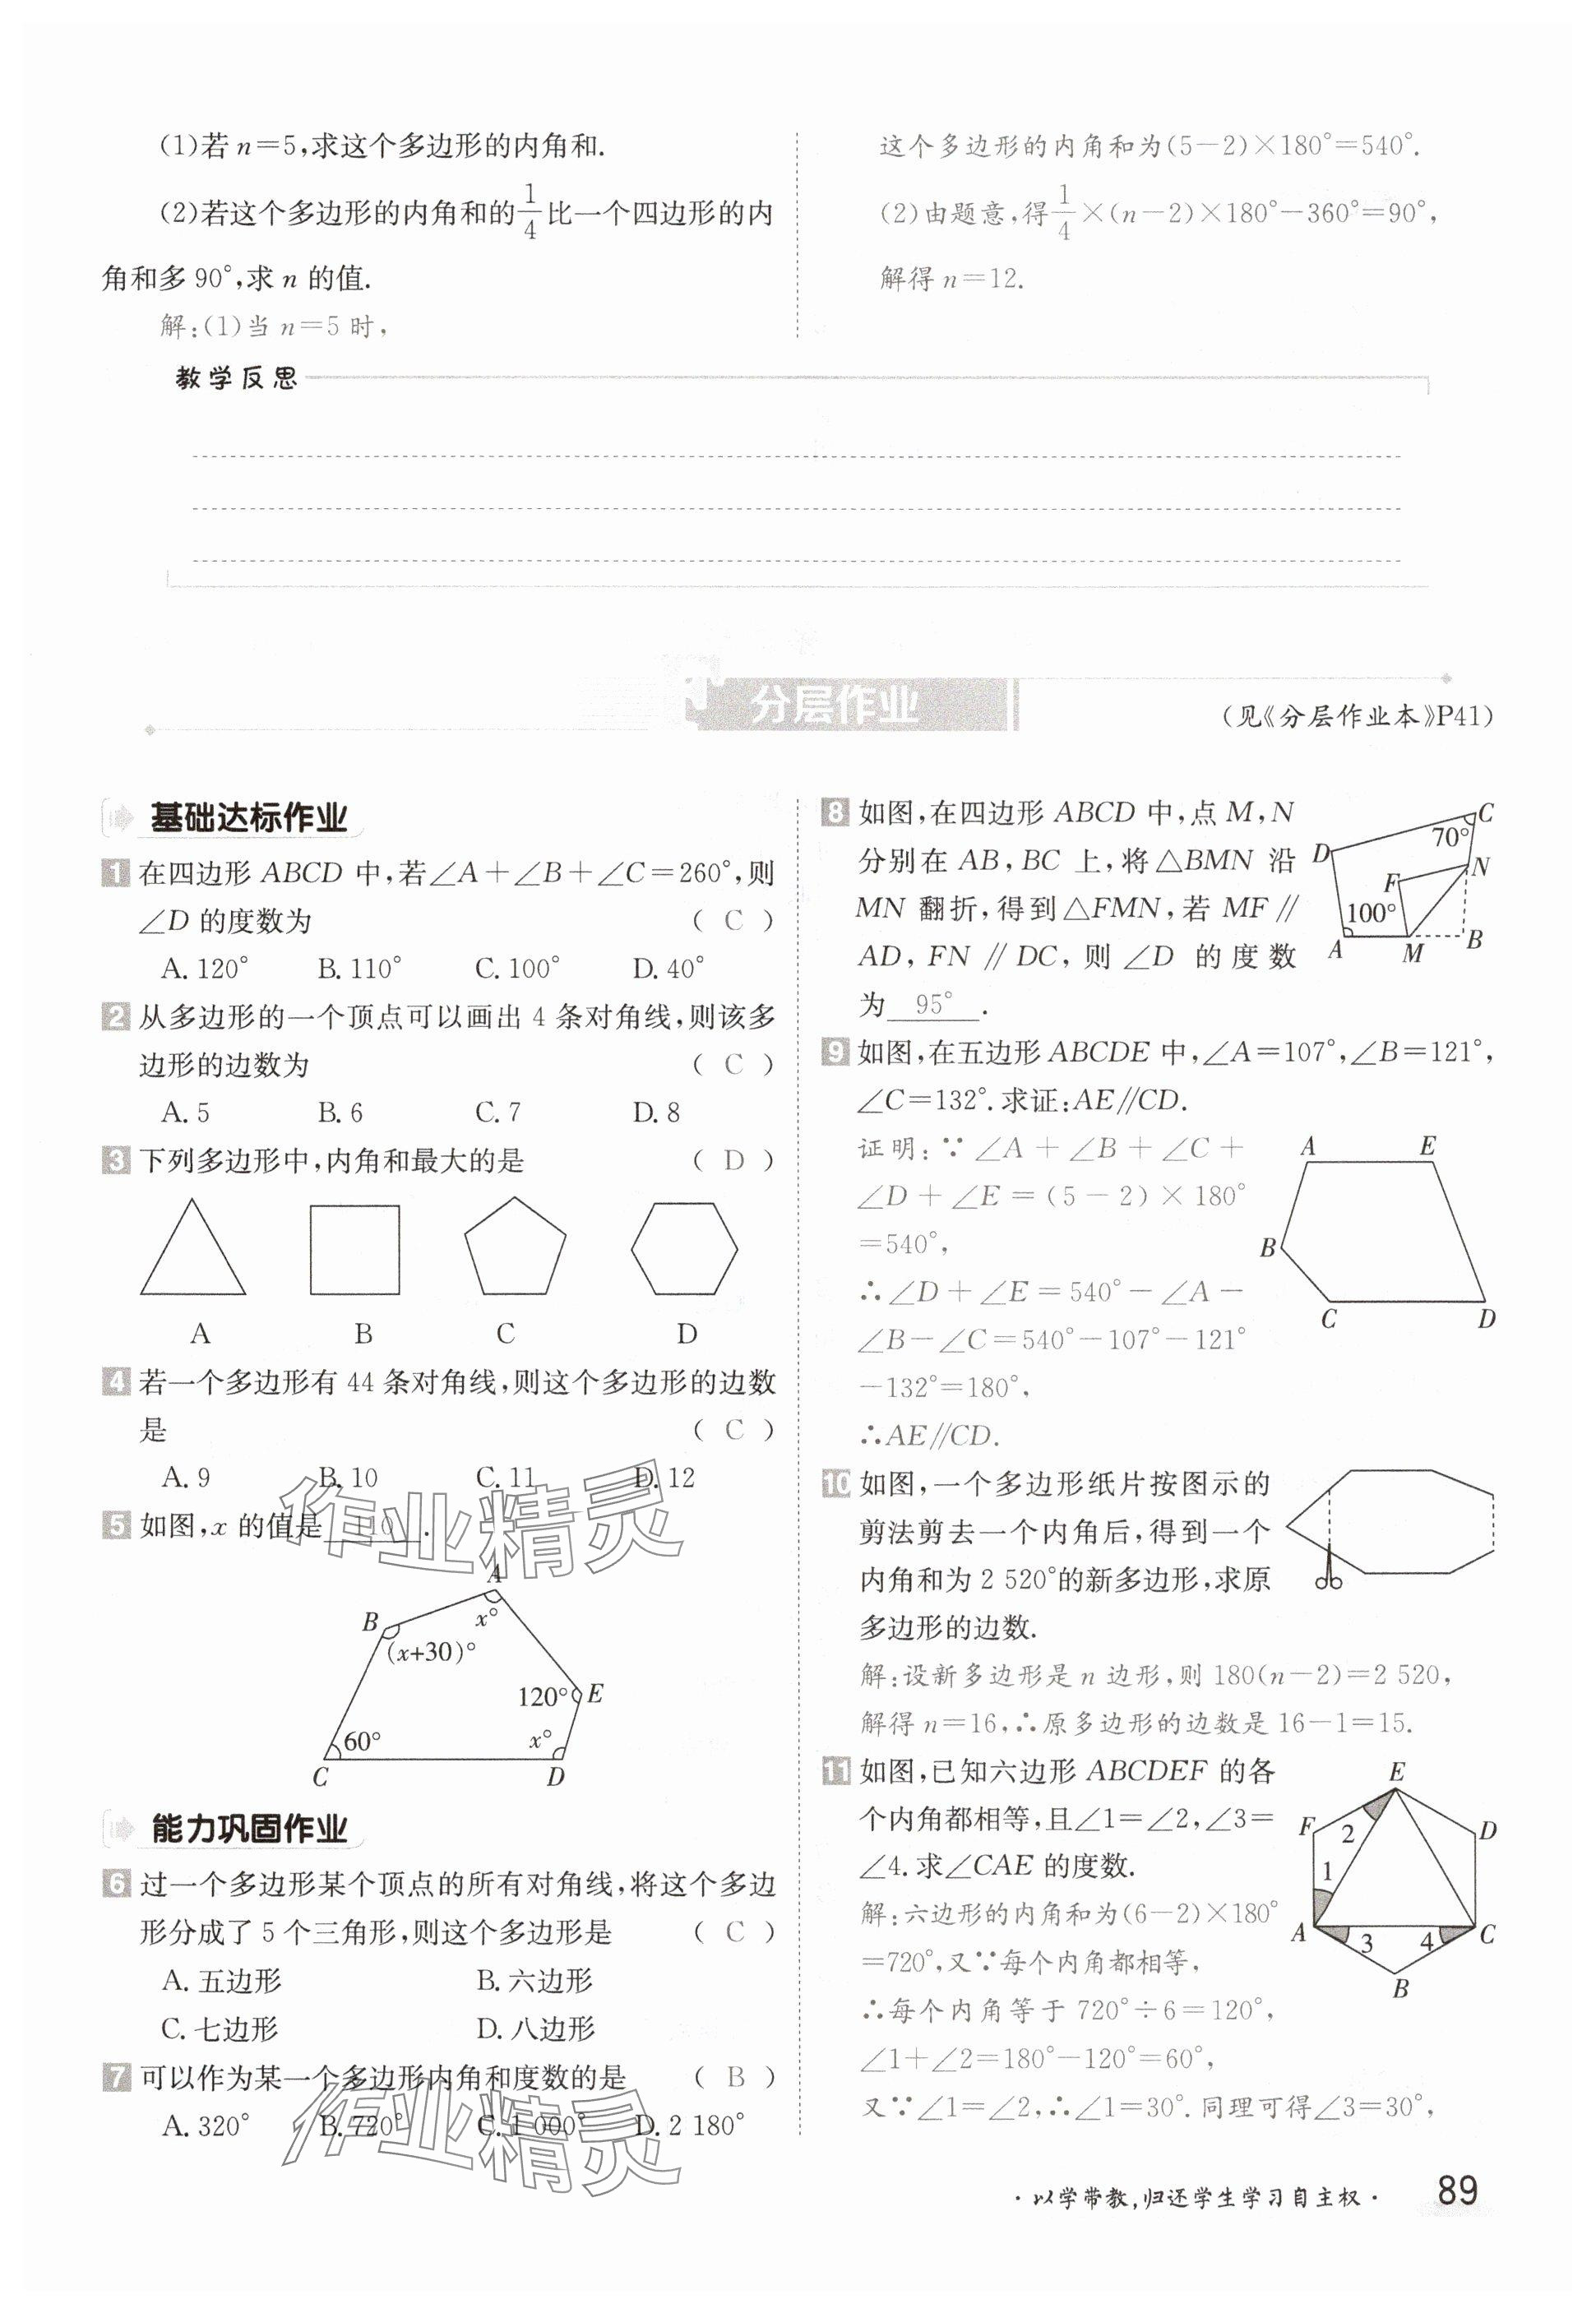 (1)若n=5,求这个多边形的内角和.
(2)若这个多边形的内角和的1/4比一个四边形的内
角和多90°,求n的值.
解:(1)当n=5时,
这个多边形的内角和为(5-2)×180°=540°.
(2)由题意,得1/4×(n-2)×180°-360°=90°,
解得n=12.
教学反思
分层作业
(见《分层作业本》P41)
基础达标作业
1 在四边形ABCD中,若∠A+∠B+∠C=260°,则
∠D的度数为 ( C )
A.120° B.110° C.100° D.40°
2 从多边形的一个顶点可以画出4条对角线,则该多
边形的边数为 ( C )
A.5 B.6 C.7 D.8
3 下列多边形中,内角和最大的是 ( D )
A B C D
4 若一个多边形有44条对角线,则这个多边形的边数
是 ( C )
A.9 B.10 C.11 D.12
5 如图,x的值是 110 .
作业精灵
A
B
x°
(x+30)°
120° E
60° x°
C D
能力巩固作业
6 过一个多边形某个顶点的所有对角线,将这个多边
形分成了5个三角形,则这个多边形是 ( C )
A.五边形 B.六边形
C.七边形 D.八边形
7 可以作为某一个多边形内角和度数的是 ( B )
A.320° B.720° C.1 000° D.2 180°
作业精灵
8 如图,在四边形ABCD中,点M,N
分别在AB,BC上,将△BMN沿
MN翻折,得到△FMN,若MF∥
AD,FN∥DC,则∠D的度数
为 95° .
C
70°
D
N
F
100°
A M B
9 如图,在五边形ABCDE中,∠A=107°,∠B=121°,
∠C=132°.求证:AE∥CD.
证明:∵∠A+∠B+∠C+
∠D+∠E=(5-2)×180°
=540°,
∴∠D+∠E=540°-∠A-
∠B-∠C=540°-107°-121°
-132°=180°,
∴AE∥CD.
A E
B
C D
10 如图,一个多边形纸片按图示的
剪法剪去一个内角后,得到一个
内角和为2 520°的新多边形,求原
多边形的边数.
解:设新多边形是n边形,则180(n-2)=2 520,
解得n=16,∴原多边形的边数是16-1=15.
11 如图,已知六边形ABCDEF的各
个内角都相等,且∠1=∠2,∠3=
∠4.求∠CAE的度数.
解:六边形的内角和为(6-2)×180°
=720°,又∵每个内角都相等,
∴每个内角等于720°÷6=120°,
∠1+∠2=180°-120°=60°,
又∵∠1=∠2,∴∠1=30°.同理可得∠3=30°,
E
F 2 D
1
A 3 4 C
B
·以学带教,归还学生学习自主权· 89